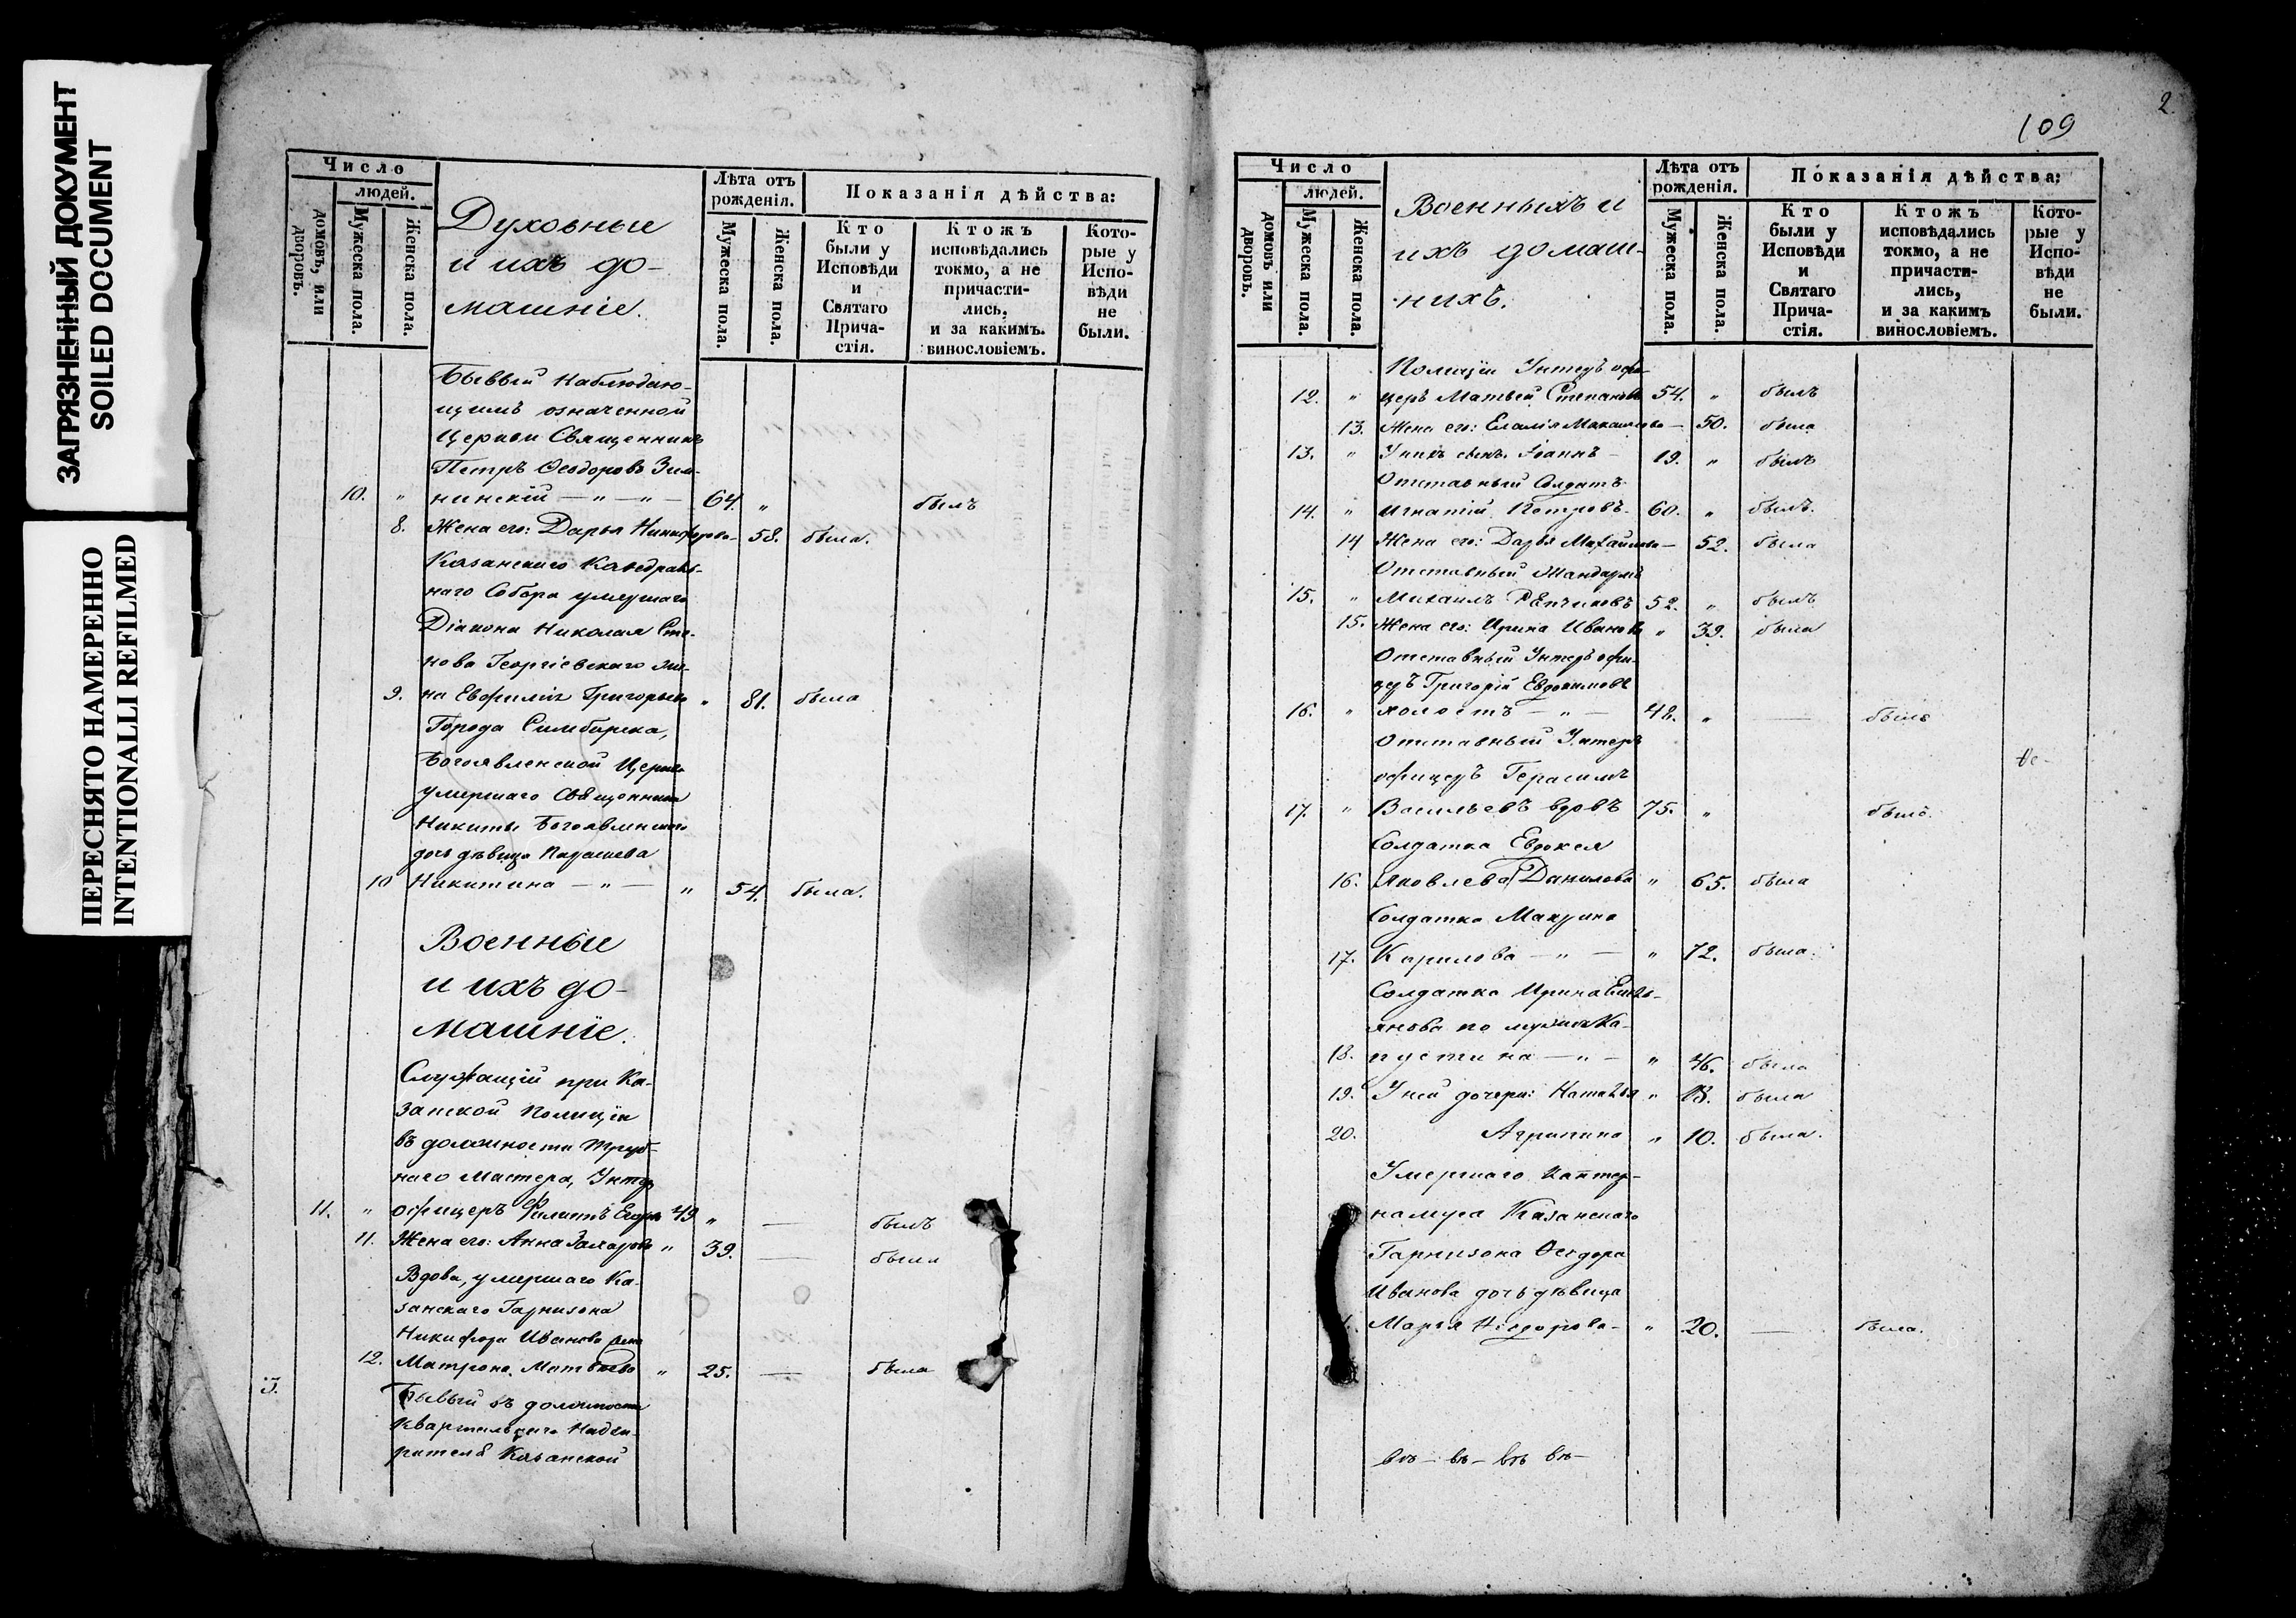 ЗАГРЯЗНЕННЫЙ ДОКУМЕНТ
SOILED DOCUMENT
ПЕРЕСНЯТО НАМЕРЕННО
INTENTIONALLI REFILMED
Число
людей.
домовъ, или дворовъ.
Мужеска пола.
Женска пола.
Духовные
и ихъ до-
машніе.
Лѣта отъ
рожденія.
Мужеска пола.
Женска пола.
Показанія дѣйства:
Кто
были у
Исповѣди
и
Святаго
Прича-
стія.
Ктожъ
исповѣдались
токмо, а не
причасти-
лись,
и за какимъ.
винословіемъ.
Кото-
рые у
Испо-
вѣди
не
были.
Бывый наблюдаю-
щимъ означенной
Церкви Священникъ
Петръ Ѳеодоровъ
10. " нинскій — " — " — 64. " былъ
8. Жена его: Дарья Никифорова 58. была.
Казанскаго Каѳедраль-
наго Собора умершаго
Діакона Николая
нова Георгіевскаго
9. на Евфимія Григорьева " 81. была
Города Симбирска,
Богоявленской Церкви
умершаго Священника
Никиты Богоявленскаго
дочь дѣвица
10 Никитина — " — " 54. была.
Военные
и ихъ до-
машніе.
Служащій при Ка-
занской Полиціи
въ должности Труб-
наго Мастера, Унтеръ
11. " офицеръ Филиппъ Егоровъ 49 " — былъ
11. Жена его: Анна Захарова " 39. — была
Вдова, умершаго Ка-
занскаго Гарнизона
Никифора Иванова жена
12. Матрона Матвѣева " 25. — была
3.
Бывый въ должности
Квартальнаго Надзи-
рателя Казанской
2
109
Число
людей.
домовъ или дворовъ.
Мужеска пола.
Женска пола.
Военныхъ и
ихъ домаш-
нихъ.
Лѣта отъ
рожденія.
Мужеска пола.
Женска пола.
Показанія дѣйства:
Кто
были у
Исповѣди
и
Святаго
Прича-
стія.
Ктожъ
исповѣдались
токмо, а не
причасти-
лись,
и за какимъ
винословіемъ.
Кото-
рые у
Испо-
вѣди
не
были.
Полиціи Унтеръ офи-
12. " церъ Матвей Степановъ 54. " былъ
13. Жена его: — 50. была
13. " У нихъ сынъ Іоаннъ — 19. " былъ
Отставный Солдатъ
14. " Игнатій Петровъ. 60. " былъ.
14 Жена его: Дарья Михайлова — 52. была
Отставный Жандармъ
15. " Михаилъ 52. " былъ
15. Жена его: Ирина Иванова " 39. была
Отставный Унтеръ офи-
церъ Григорій Евдокимовъ
16. " холостъ — " — 48. " — былъ
Отставный Унтеръ
офицеръ Герасимъ
17. " Васильевъ вдовъ 75. " былъ.
Солдатка Евдокея
16. Яковлева Данилова " 65. была
Солдатка Макрина
17. Кирилова — " — " 72. была.
Солдатка Ирина Емель-
янова по мужѣ Ка-
18. пустина — " — " 46. была
19. У ней дочери: Наталья " 13. была
20. Агрипина " 10. была.
Умершаго Каптер-
намуса Казанскаго
Гарнизона Ѳеодора
Иванова дочь дѣвица
Марья Ѳеодорова — " 20. — была.